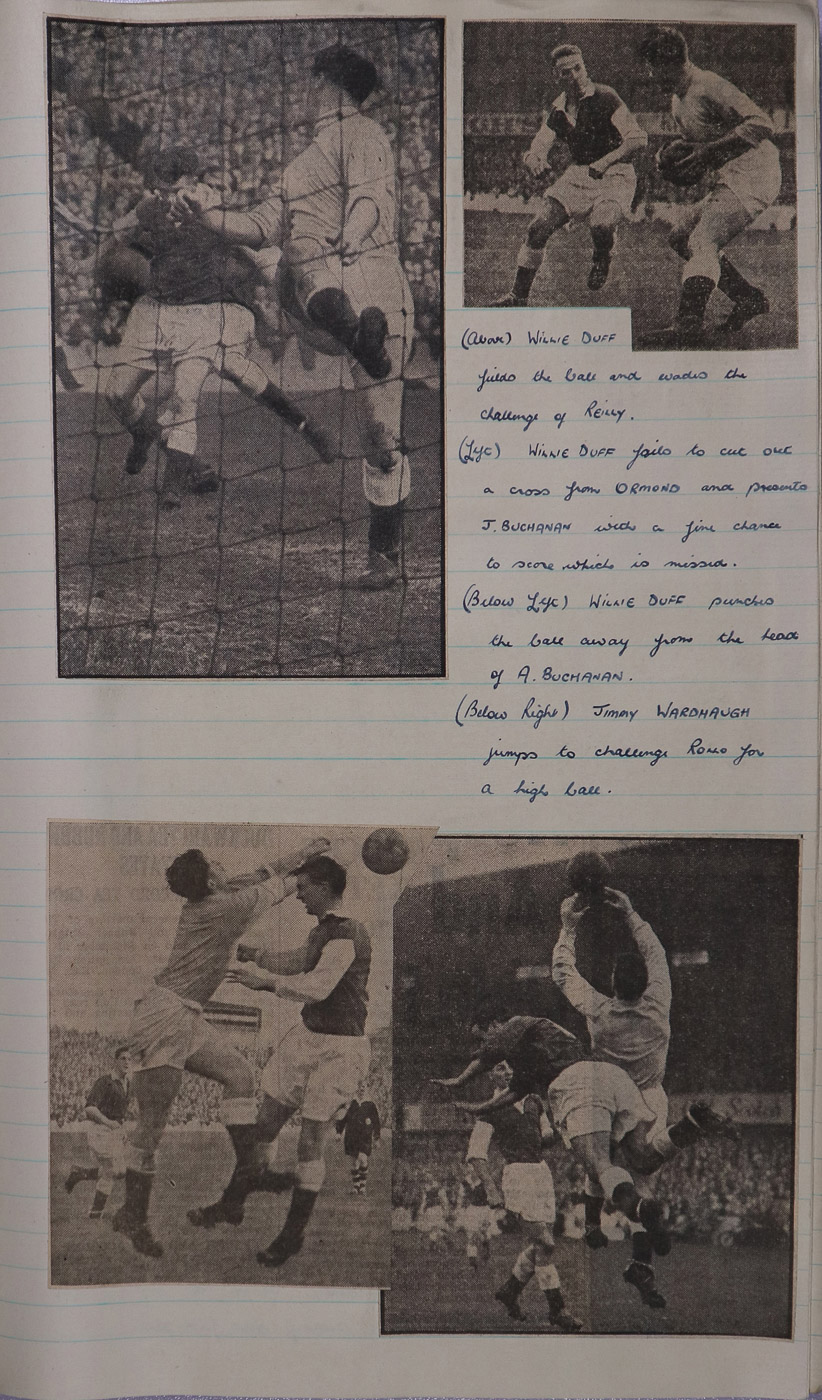 (Above) WILLIE DUFF
fields the ball and evades the
challenge of REILLY.
(Left) WILLIE DUFF fails to cut out
a cross from ORMOND and presents
J. BUCHANAN with a fine chance
to score which is missed.
(Below Left) WILLIE DUFF punches
the ball away from the head
of A. BUCHANAN.
(Below Right) JIMMY WARDHAUGH
jumps to challenge for
a high ball.